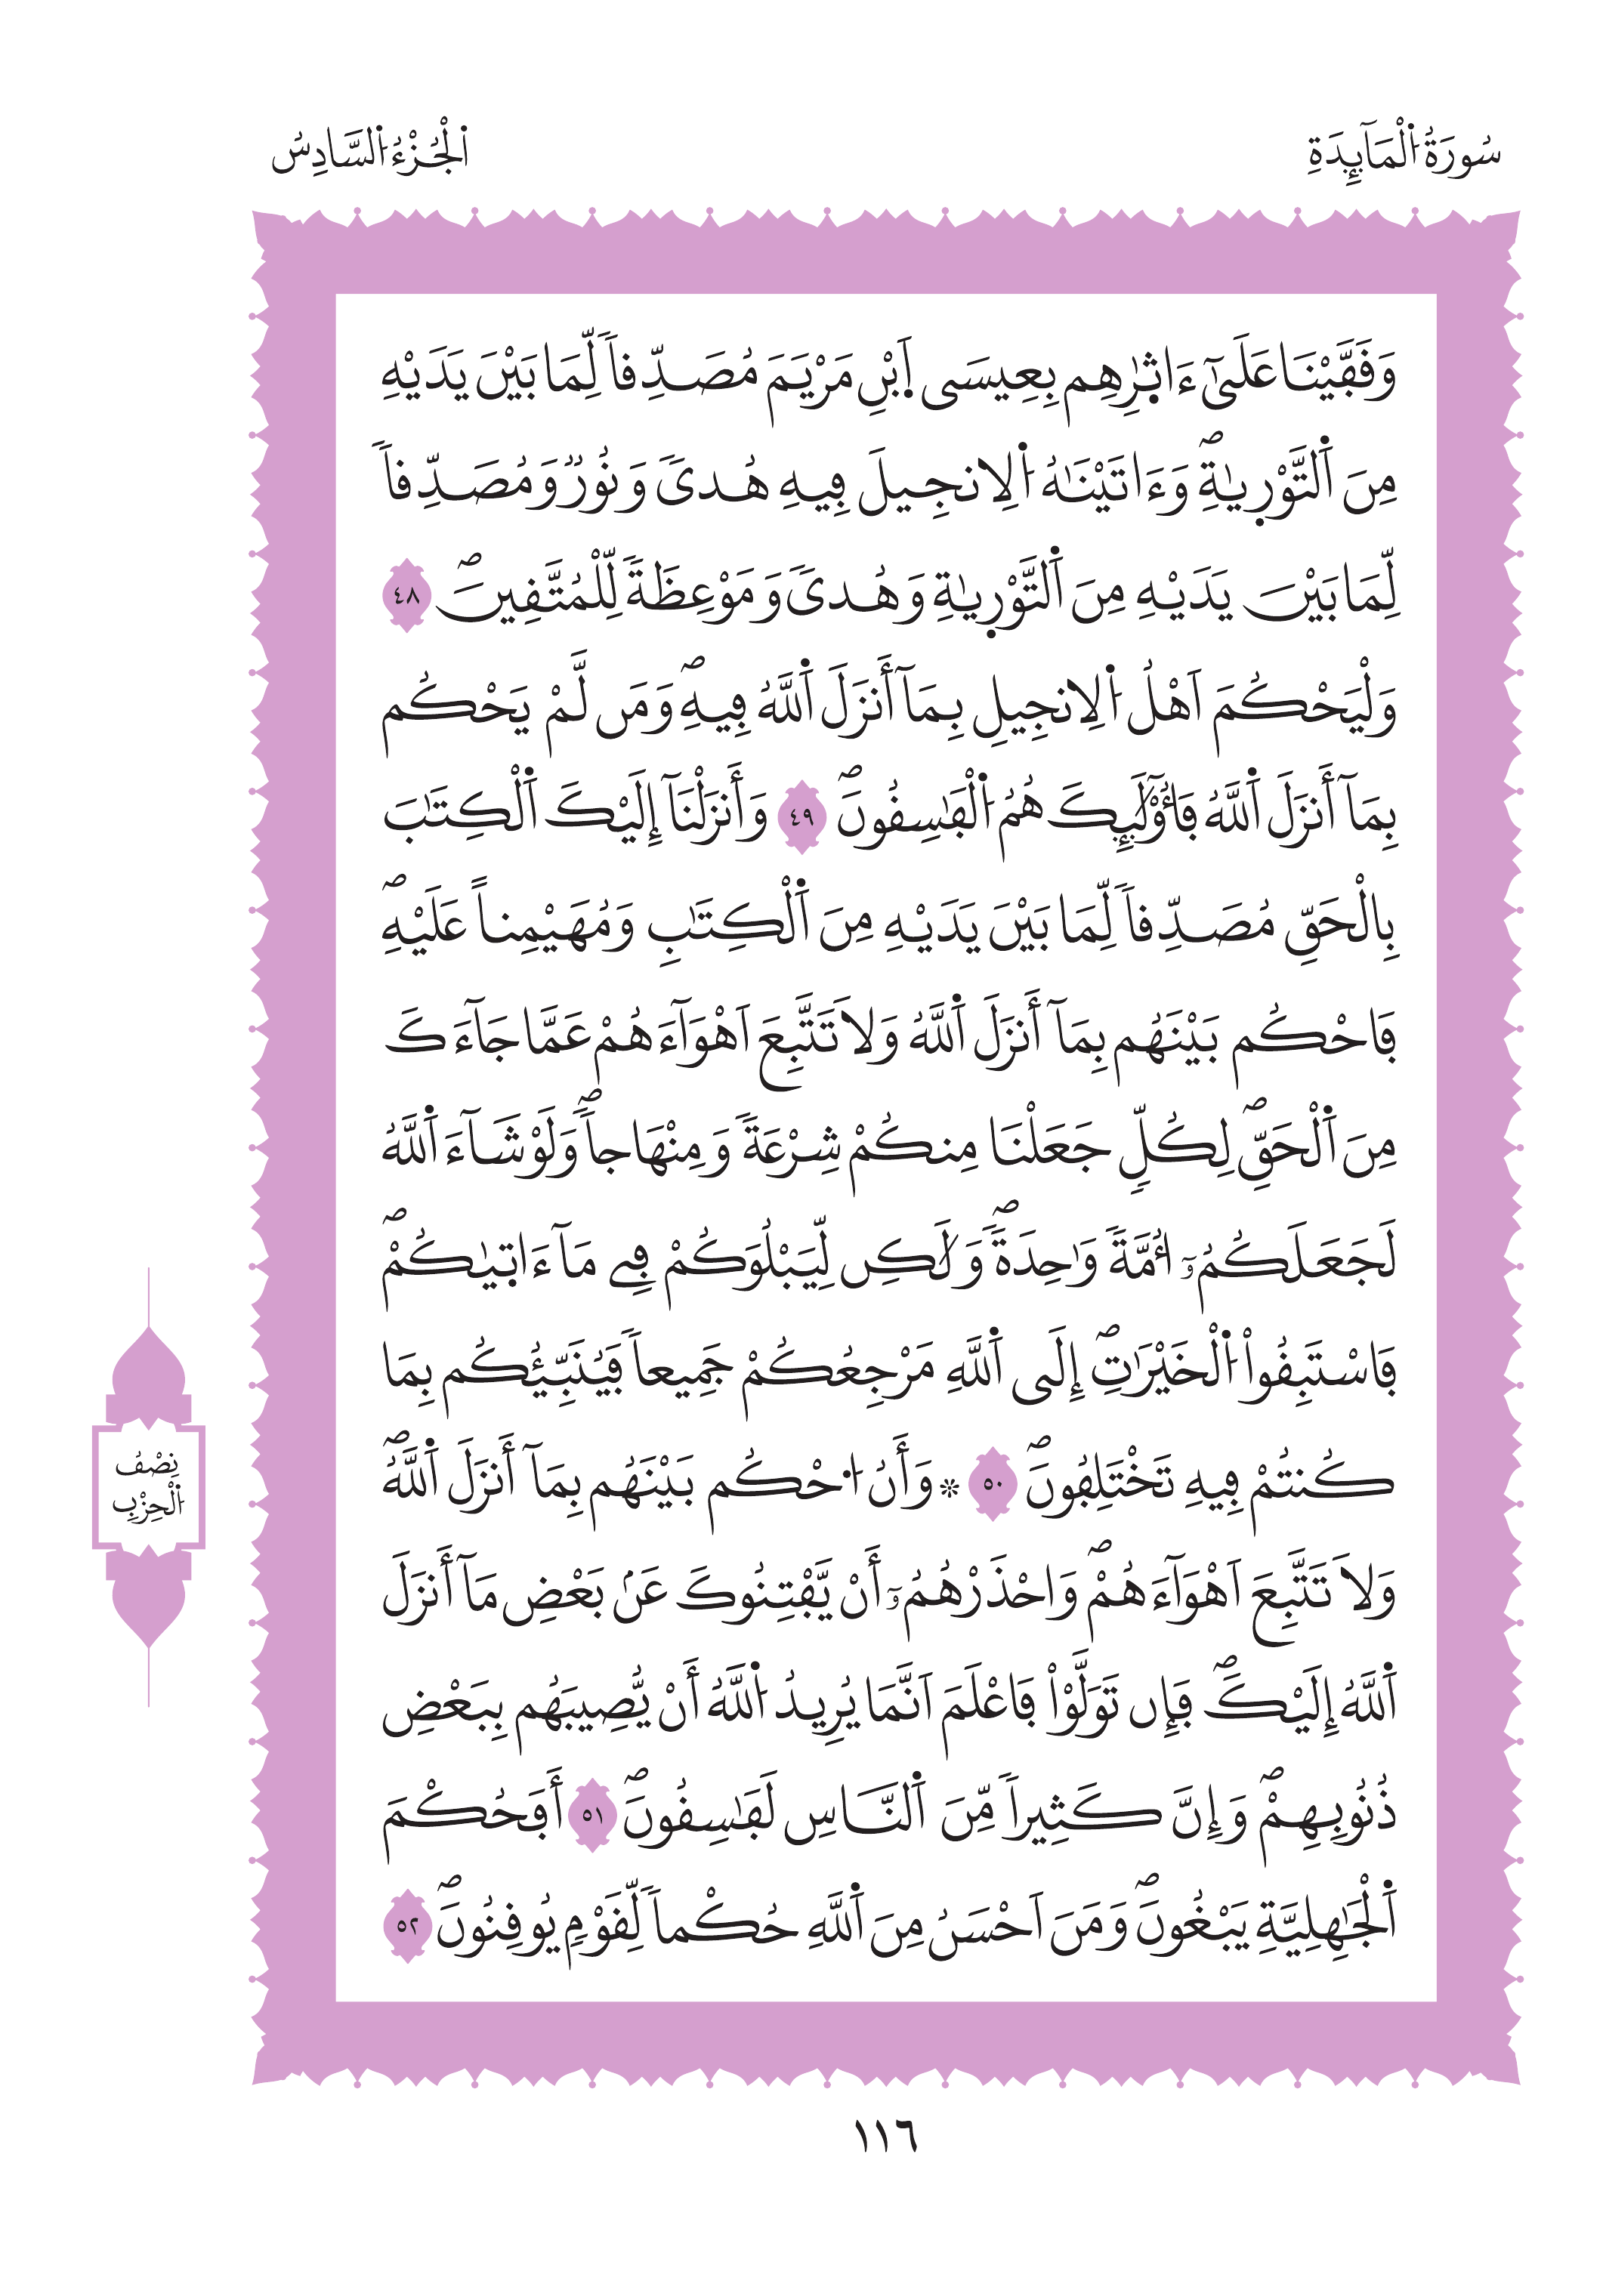 سُورَةُ اُ۬لْمَآئِدَةِ
اَ۬لْجُزْءُ اُ۬لسَّادِسُ
وَقَفَّيْنَا عَلَىٰٓ ءَاثٰ۪رِهِم بِعِيسَى اَ۪بْنِ مَرْيَمَ مُصَدِّقاٗ لِّمَا بَيْنَ يَدَيْهِ
مِنَ اَ۬لتَّوْر۪يٰةِۖ وَءَاتَيْنَٰهُ اُ۬لِانجِيلَ فِيهِ هُدىٗ وَنُورٞ وَمُصَدِّقاٗ
لِّمَا بَيْنَ يَدَيْهِ مِنَ اَ۬لتَّوْر۪يٰةِ وَهُدىٗ وَمَوْعِظَةٗ لِّلْمُتَّقِينَۖ ٤٨
وَلْيَحْكُمَ اَهْلُ اُ۬لِانجِيلِ بِمَآ أَنزَلَ اَ۬للَّهُ فِيهِۖ وَمَن لَّمْ يَحْكُم
بِمَآ أَنزَلَ اَ۬للَّهُ فَأُوْلَٰٓئِكَ هُمُ اُ۬لْفَٰسِقُونَۖ ٤٩ وَأَنزَلْنَآ إِلَيْكَ اَ۬لْكِتَٰبَ
بِالْحَقِّ مُصَدِّقاٗ لِّمَا بَيْنَ يَدَيْهِ مِنَ اَ۬لْكِتَٰبِ وَمُهَيْمِناً عَلَيْهِۖ
فَاحْكُم بَيْنَهُم بِمَآ أَنزَلَ اَ۬للَّهُ وَلَا تَتَّبِعَ اَهْوَآءَهُمْ عَمَّا جَآءَكَ
مِنَ اَ۬لْحَقِّۖ لِكُلّٖ جَعَلْنَا مِنكُمْ شِرْعَةٗ وَمِنْهَاجاٗۖ وَلَوْ شَآءَ اَ۬للَّهُ
لَجَعَلَكُمُۥٓ أُمَّةٗ وَٰحِدَةٗۖ وَلَٰكِن لِّيَبْلُوَكُمْ فِے مَآ ءَات۪يٰكُمْۖ
فَاسْتَبِقُواْ اُ۬لْخَيْرَٰتِۖ إِلَى اَ۬للَّهِ مَرْجِعُكُمْ جَمِيعاٗ فَيُنَبِّئُكُم بِمَا
كُنتُمْ فِيهِ تَخْتَلِفُونَۖ ٥٠ ۞ وَأَنُ اُ۟حْكُم بَيْنَهُم بِمَآ أَنزَلَ اَ۬للَّهُۖ
وَلَا تَتَّبِعَ اَهْوَآءَهُمْۖ وَاحْذَرْهُمُۥٓ أَنْ يَّفْتِنُوكَ عَنۢ بَعْضِ مَآ أَنزَلَ
اَ۬للَّهُ إِلَيْكَۖ فَإِن تَوَلَّوْاْ فَاعْلَمَ اَنَّمَا يُرِيدُ اُ۬للَّهُ أَنْ يُّصِيبَهُم بِبَعْضِ
ذُنُوبِهِمْۖ وَإِنَّ كَثِيراٗ مِّنَ اَ۬لنَّاسِ لَفَٰسِقُونَۖ ٥١ أَفَحُكْمَ
اَ۬لْجَٰهِلِيَّةِ يَبْغُونَۖ وَمَنَ اَحْسَنُ مِنَ اَ۬للَّهِ حُكْماٗ لِّقَوْمٖ يُوقِنُونَۖ ٥٢
نِصْفُ
اُ۬لْحِزْبِ
١١٦